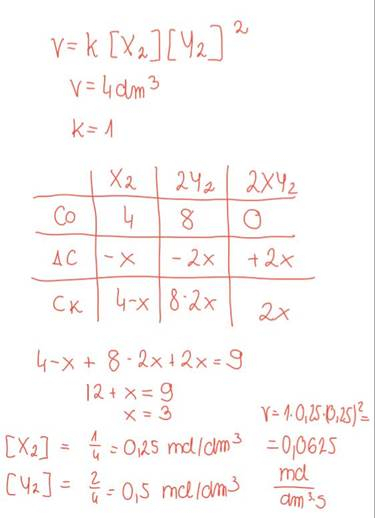 v = k [X2][Y2]²
V = 4dm³
k = 1
X2 2Y2 2XY2
C0 4 8 0
ΔC -x -2x +2x
CK 4-x 8-2x 2x
4-x + 8-2x+2x = 9
12 + x = 9
x = 3
[X2] = 1/4 = 0,25 mol/dm³
[Y2] = 2/4 = 0,5 mol/dm³
v = 1·0,25·(0,25)² =
= 0,0625
mol
dm³·s